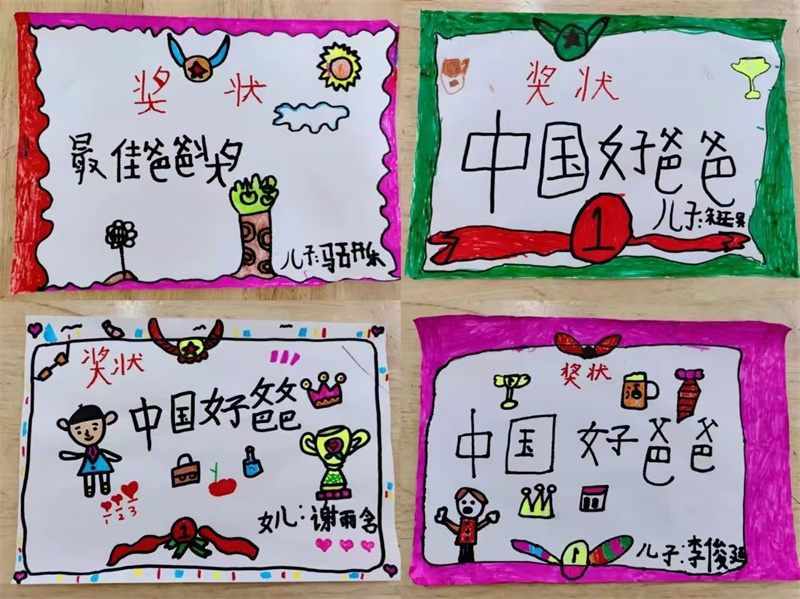 奖状
最佳爸爸奖
儿子:马
奖状
中国好爸爸
儿子:
1
奖状
中国好爸爸
1 2 3
1
女儿:谢雨
奖状
酒
中国好爸爸
1
儿子:李俊延